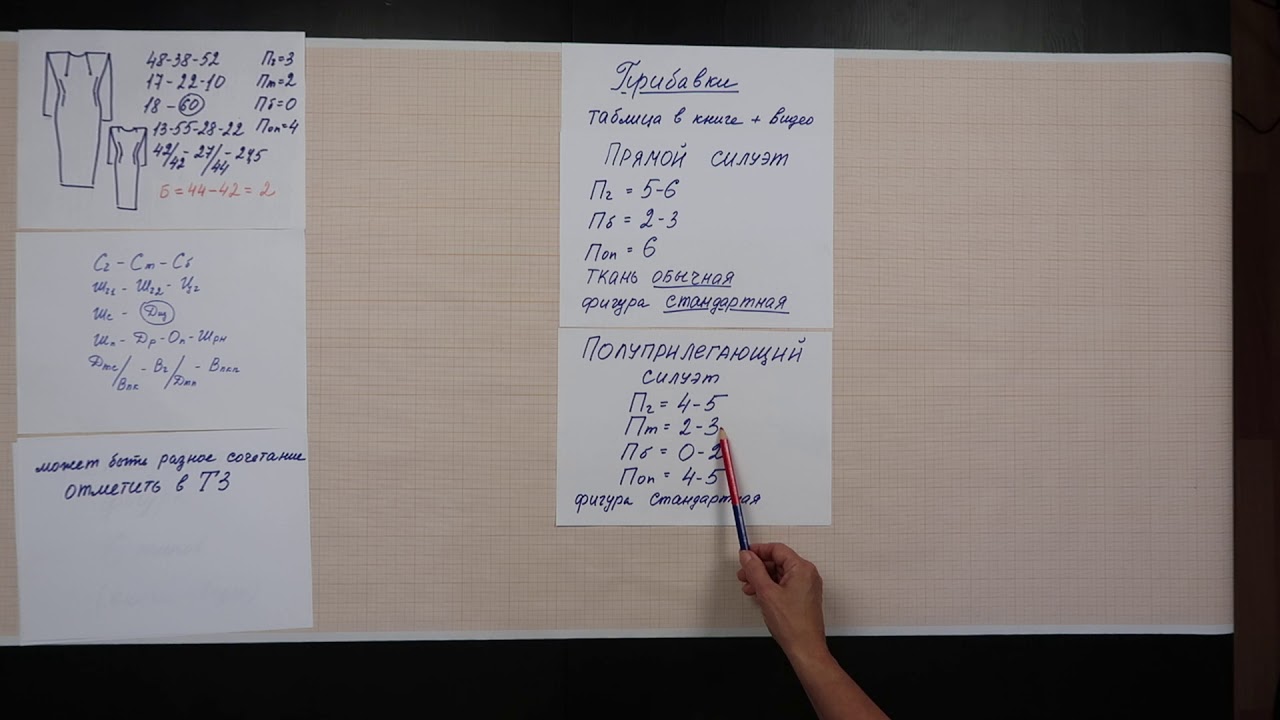 48-38-52 Пг=3
17-22-10 Пт=2
18-60 Пб=0
13-55-28-22 Поп=4
42/42-27/44-24,5
Б=44-42=2
Сг-Ст-Сб
Шг1-Шг2-Цг
Шс-Диз
Шп-Др-Оп-Шрн
Дтс/Впк-Вг/Дтп-Впкп
может быть разное сочетание
отметить в ТЗ
Прибавки
таблица в книге + видео
Прямой силуэт
Пг = 5-6
Пб = 2-3
Поп = 6
ткань обычная
фигура стандартная
Полуприлегающий
силуэт
Пг = 4-5
Пт = 2-3
Пб = 0-2
Поп = 4-5
фигура стандартная